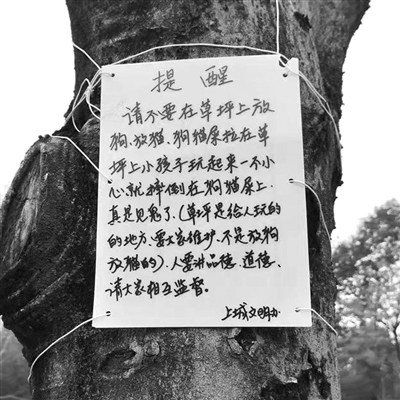 提醒
请不要在草坪上放
狗、放猫、狗猫屎拉在草
坪上小孩子玩起来一不小
心就摔倒在狗猫屎上.
真是见鬼了.(草坪是给人玩的
的地方、要大家维护、不是放狗
放猫的)、人要讲品德、道德、
请大家相互监督。
上城文明办